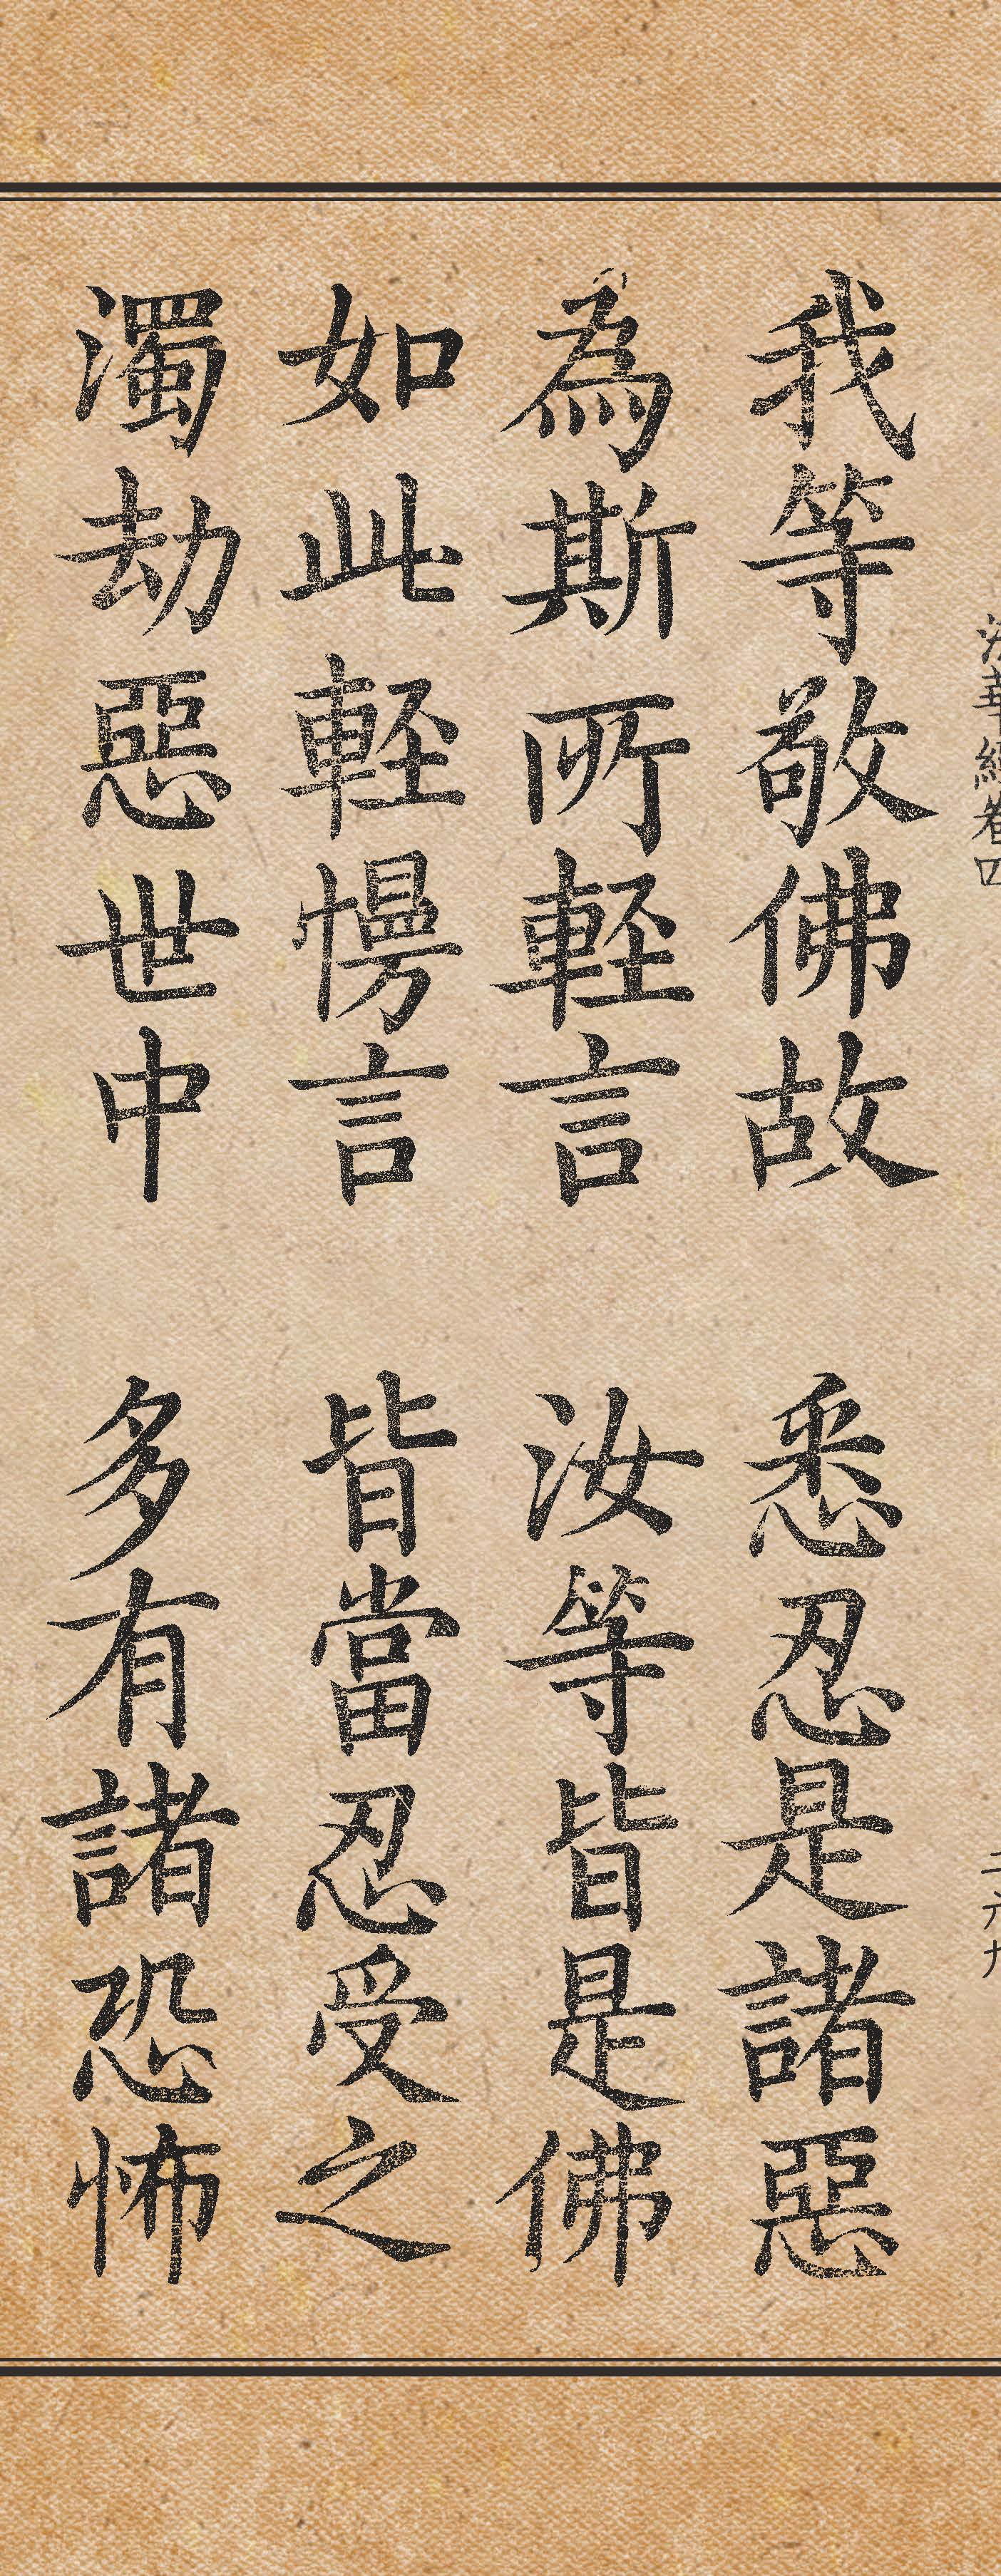 我等敬佛故 悉忍是諸惡
為斯所輕言 汝等皆是佛
如此輕慢言 皆當忍受之
濁劫惡世中 多有諸恐怖